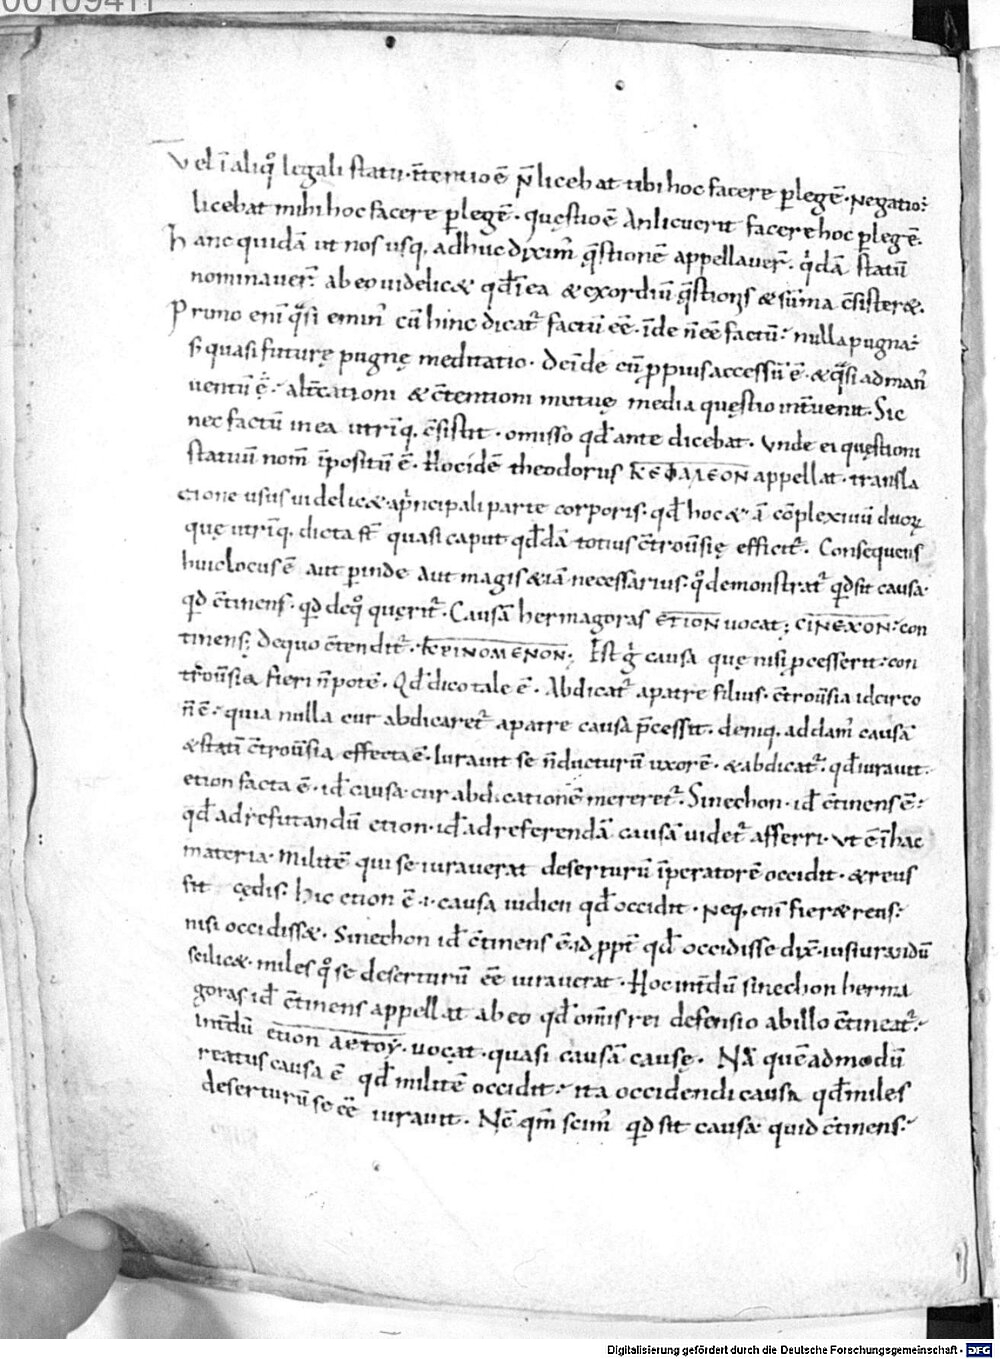 00109411
Vel ī aliq̊ legali statu · ītentio ē · P̄ licebat tibi hoc facere ꝑ legē · Negatio ·
licebat mihi hoc facere ꝑ legē · questio ē · An licuerit facere hoc ꝑ legē ·
Hanc quidā ut nos usq, adhuc diximꝰ q̄stionē appellauer̄ · q̇dā statū
nominauer̄ · ab eo uidelicæ qđ ī ea & exordiū q̄stionis & sūma c̄sisteræ ·
Primo enī q̄si eminꝰ cū hinc dicat᷑ factū eē · īde ñ eē factū · nulla pugna ·
s; quasi futurę pugnę meditatio · Deīde cū ꝓpius accessū ē · & q̄si ad manꝰ
uentū ē · alt̄cationi & c̄tentioni mutuę media questio int̄uenit · Sic
nec factū in ea utrīq, c̄sistit · omisso qđ ante dicebat · Unde ei questioni
statuū nom̄ īpositū ē · Hoc idē theodorus ΚΕΦΑΛΕΟΝ appellat · transla
cione usus uidelicæ a pͥncipali parte corporis · qđ hoc & ā cōplexiuū duoꝝ
quę utrīq, dicta st̄ quasi caput qđdā totius c̄trouersię efficit᷑ · Consequens
huic locus ē aut ꝑinde aut magis & iā necessarius · q̊ demonstrat᷑ qd sit causa ·
qd c̄tinens · qd de q̊ querit᷑ · Causā hermagoras ΕΤΙΟΝ uocat ; CΙΝΕΧΟΝ · con
tinens ; de quo c̄tendit᷑ · ΚΡΙΝΟΜΕΝΟΝ ; Est ḡ causa quę nisi p̄cesserit · con
trouersia fieri ñ potē · Qđ dico tale ē · Abdicat᷑ a patre filius · c̄trouersia idcirco
ñ ē · quia nulla cur abdicaret᷑ a patre causa p̄cessit · deniq, addamꝰ causā
& statī c̄trouersia effecta ē · Iurauit se ñ ducturū uxorē · & abdicat᷑ · qđ iurauit ·
etion facta ē · iđ causa cur abdicationē mereret᷑ · Sinechon · iđ c̄tinens ē ·
qđ ad refutandū etion · iđ ad referendā causā uidet᷑ afferri · Ut ē ī hac
materia · Militē qui se iurauerat deserturū īperatorē occidit · & reus
fit cędis · hic etion ē · i · causa iudicii qđ occidit · Neq, enī fieræ reus ·
nisi occidissæ · Sinechon iđ c̄tinens ē · id ꝓpt̄ qđ occidisse dix̄ · iusiurandū
scilicæ · miles q̊ se deserturū eē iurauerat · Hoc int̄dū sinechon herma
goras iđ c̄tinens appellat ab eo qđ om̄is rei defensio ab illo c̄tineat᷑ ·
int̄dū etion ΑΕΤΟΥ · uocat · quasi causā causę · Nā quēadmodū
reatus causa ē qđ militē occidit · ita occidendi causa qđ miles
deserturū se eē iurauit · Nc̄ qm̄ scimꝰ qd sit causa quid c̄tinens ·
Digitalisierung gefördert durch die Deutsche Forschungsgemeinschaft - DFG